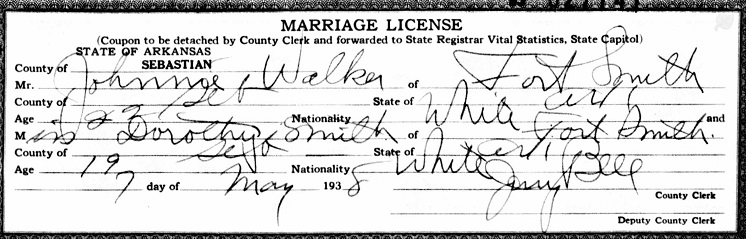 MARRIAGE LICENSE
(Coupon to be detached by County Clerk and forwarded to State Registrar Vital Statistics, State Capitol)
STATE OF ARKANSAS
County of SEBASTIAN
Mr. Johnnie Walker of Fort Smith
County of Seb State of Ark
Age 22 Nationality White and
Miss Dorothy Smith of Fort Smith.
County of Seb State of Ark
Age 19 Nationality White
7 day of May 1938 Jerry Bell
County Clerk
Deputy County Clerk